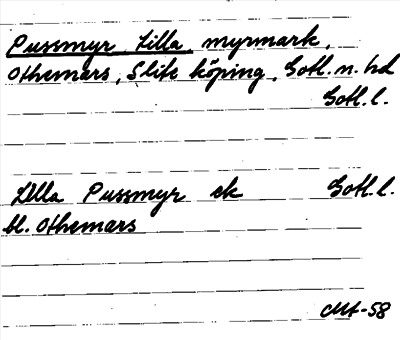 Pussmyr Lilla, myrmark,
Othemars, Slite köping, Gotl. n. hd
Gotl. l.
Lilla Pussmyr ek Gotl. l.
bl. Othemars
-58